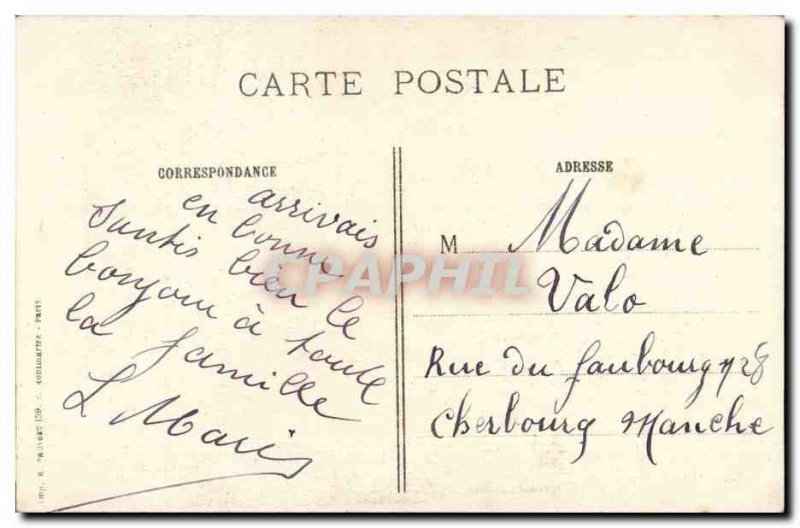 CARTE POSTALE
CORRESPONDANCE
arrivais
en bonne
bien le
bonjour à toute
la famille
L Maris
ADRESSE
M Madame
Valo
Rue du faubourg n 28
Cherbourg Manche
CPAPHIL
Montmartre - Paris